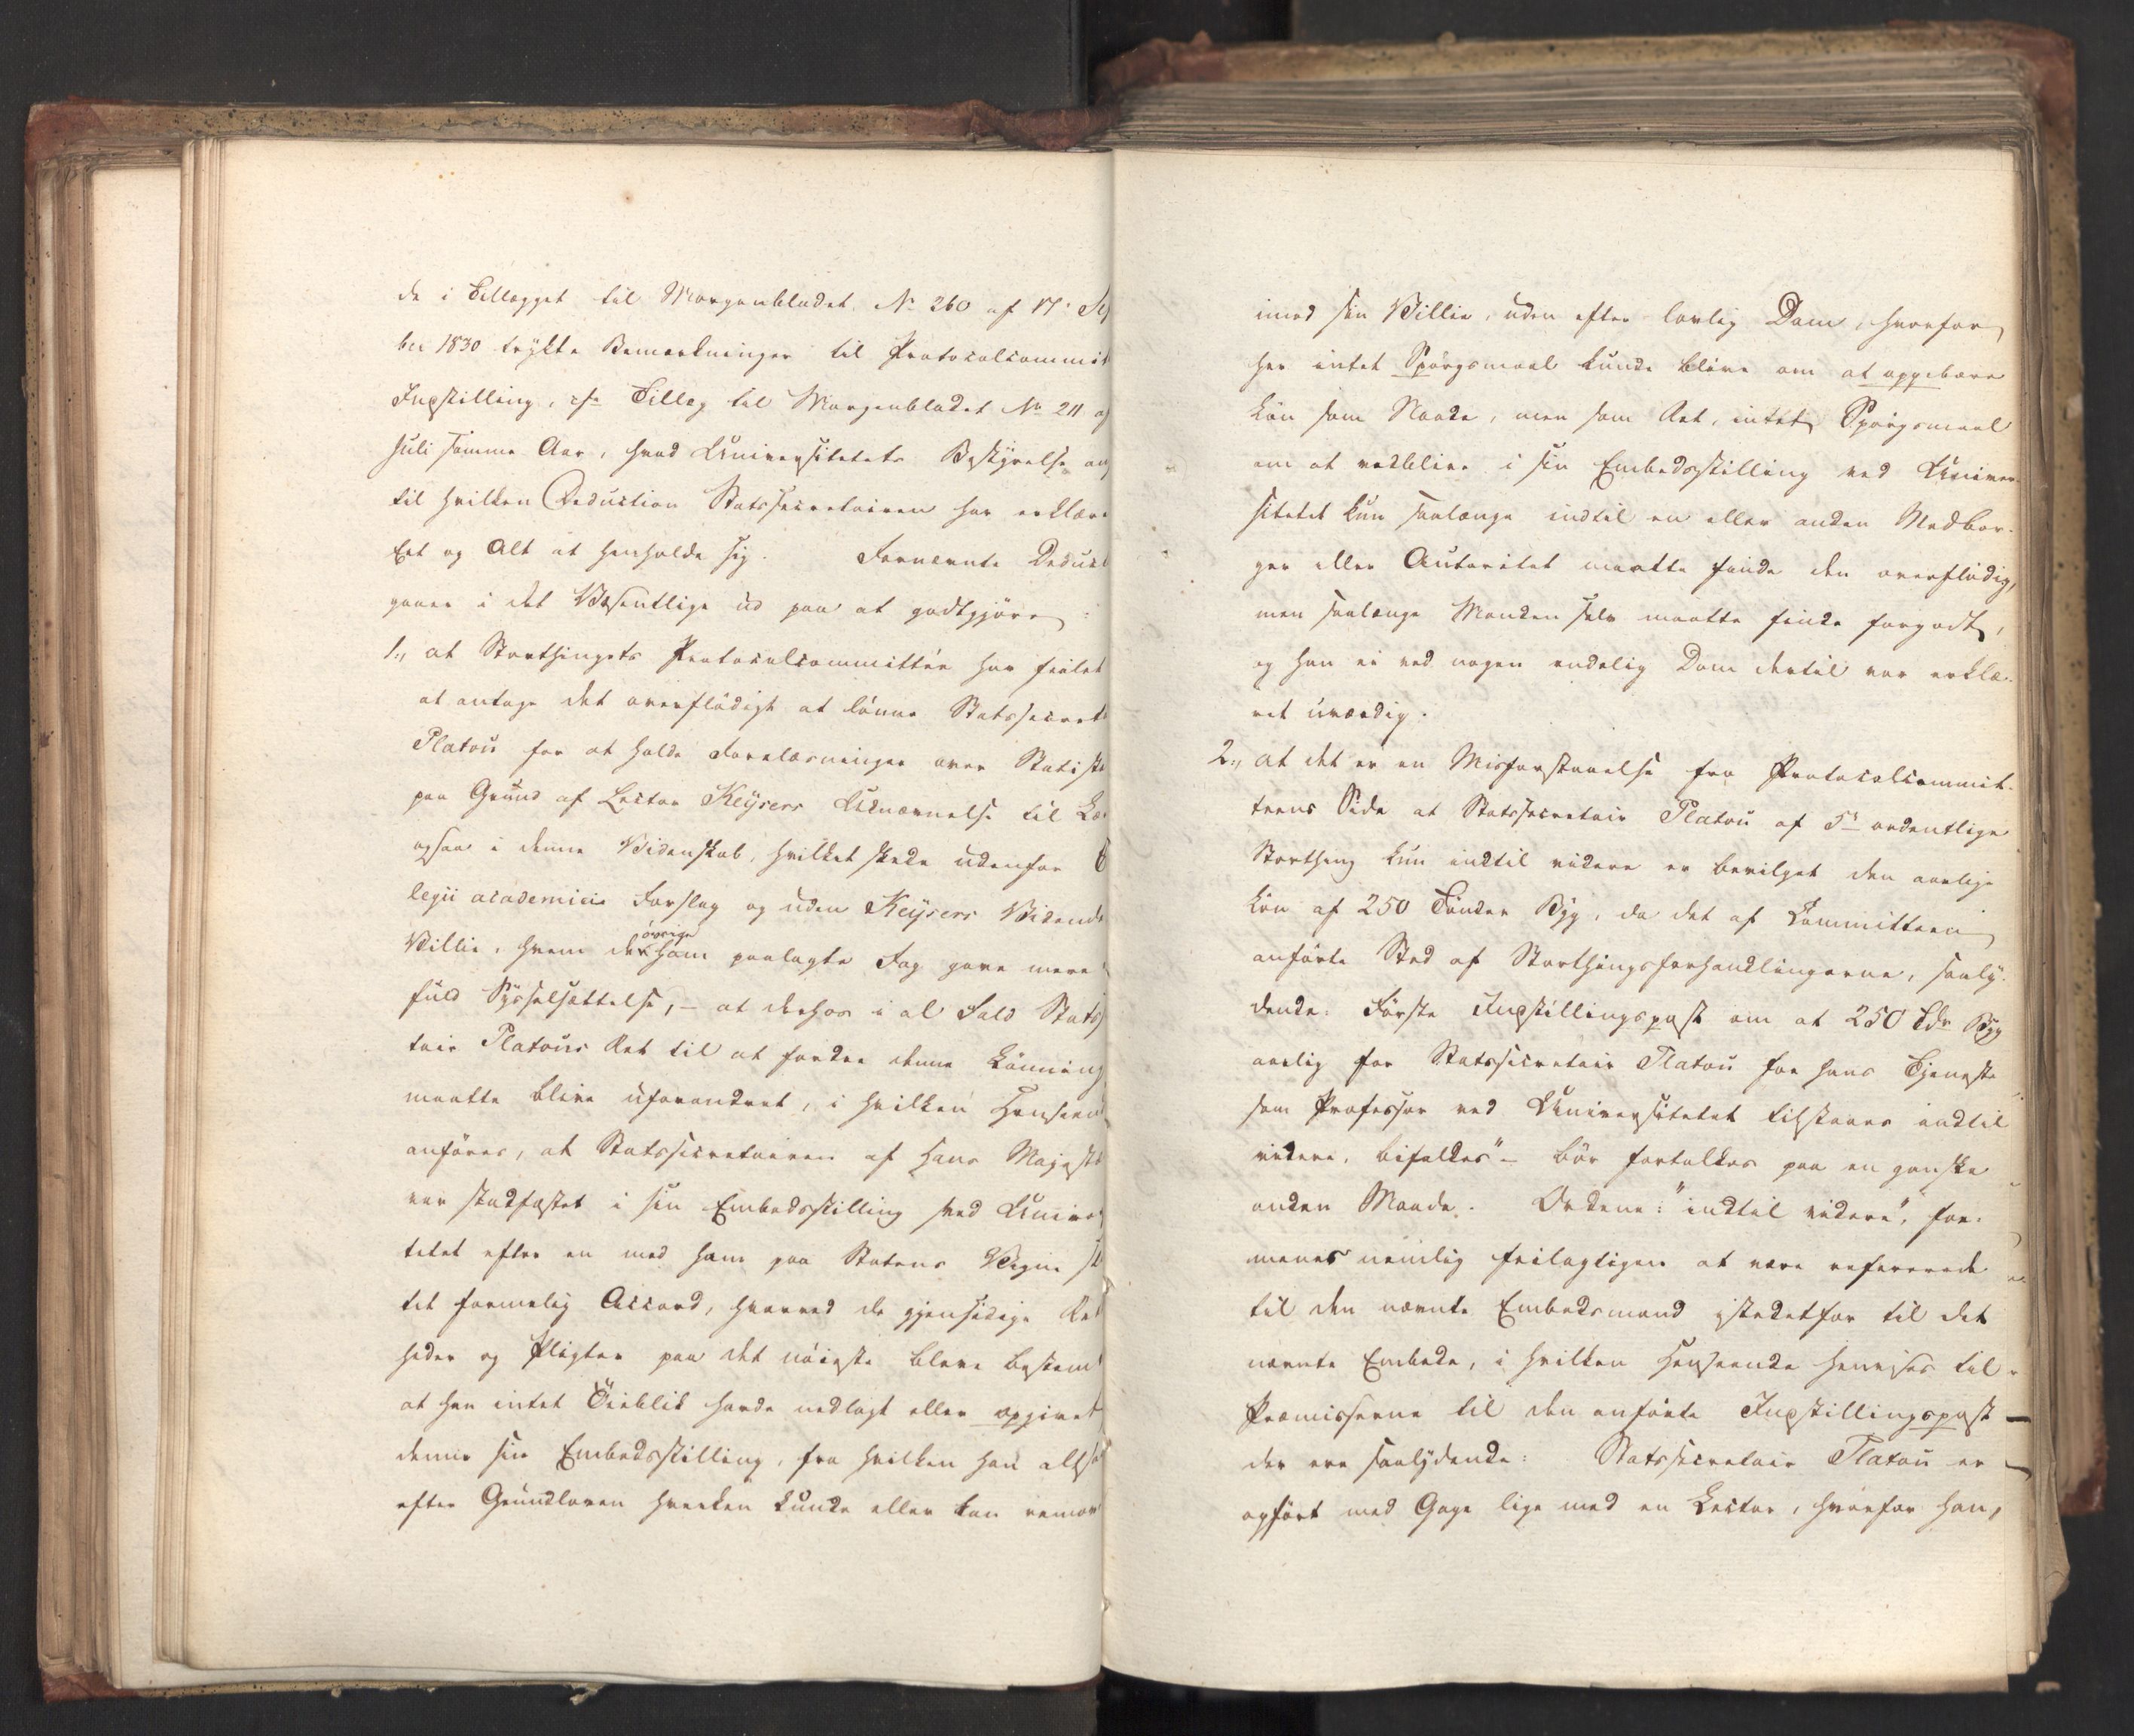 de i Tillægget til Morgenbladet No 260 af 17. Se
ber 1830 trykte Bemærkninger til Protocolcommit
Indstilling, cfr Tillæg til Morgenbladet No 211 a
Juli samme Aar, hvad Universitetets Bestyrelse an
til hvilken Deduction Statssecretairen har erklære
Eet og Alt at henholde sig. Fornævnte Deduct
gaaer i det Væsentlige ud paa at godtgjøre:
1., at Storthingets Protocolcommittée har feilet
at antage det overflødigt at lønne Statssecret
Platou for at holde Forelæsninger over Statist
paa Grund af Lector Keysers Udnævnelse til Læ
ogsaa i denne Videnskab, hvilket skede udenfor C
legii academici Forslag og uden Keysers Vidende
Villie, hvem de øvrige ham paalagte Fag gave mere
fuld Sysselsættelse, – at derhos i al Fald Stats
tair Platous Ret til at fordre denne Lønning
maatte blive uforandret, i hvilken Henseend
anføres, at Statssecretairen af Hans Majestæ
var stadfæstet i sin Embedsstilling ved Univer
tetet efter en med ham paa Statens Vegne sl
tet formelig Accord, hvorved de gjensidige Ret
heder og Pligter paa det nøieste bleve bestem
at han intet Øieblik havde nedlagt eller opgivet
denne sin Embedsstilling, fra hvilken han altsaa
efter Grundloven hverken kunde eller kan remov
imod sin Villie, uden efter lovlig Dom, hvorfor
her intet Spørgsmaal kunde blive om at oppebære
Løn som Naade, men som Ret, intet Spørgsmaal
om at vedblive i sin Embedsstilling ved Univer-
sitetet kun saalænge indtil en eller anden Medbor-
ger eller Autoritet maatte finde den overflødig,
men saalænge Manden selv maatte finde forgodt,
og han ei ved nogen endelig Dom dertil var erklæ-
ret uværdig.
2., at det er en Misforstaaelse fra Protocolcommit-
teens Side at Statssecretair Platou af 5te ordentlige
Storthing kun indtil videre er bevilget den aarlige
Løn af 250 Tønder Byg, da det af Committeen
anførte Sted af Storthingsforhandlingerne, saaly-
dende: Første Indstillingspost om at 250 Tdr Byg
aarlig for Statssecretair Platou for hans Tjeneste
som Professor ved Universitetet tilstaaes indtil
videre, bifaldes" – bør fortolkes paa en ganske
anden Maade. Ordene: "indtil videre", for-
menes nemlig feilagtigen at være refererede
til den nævnte Embedsmand istedetfor til det
nævnte Embede, i hvilken Henseende henvises til
Præmisserne til den anførte Indstillingspost
der ere saalydende: Statssecretair Platou er
opført med Gage lige med en Lector, hvorfor han,